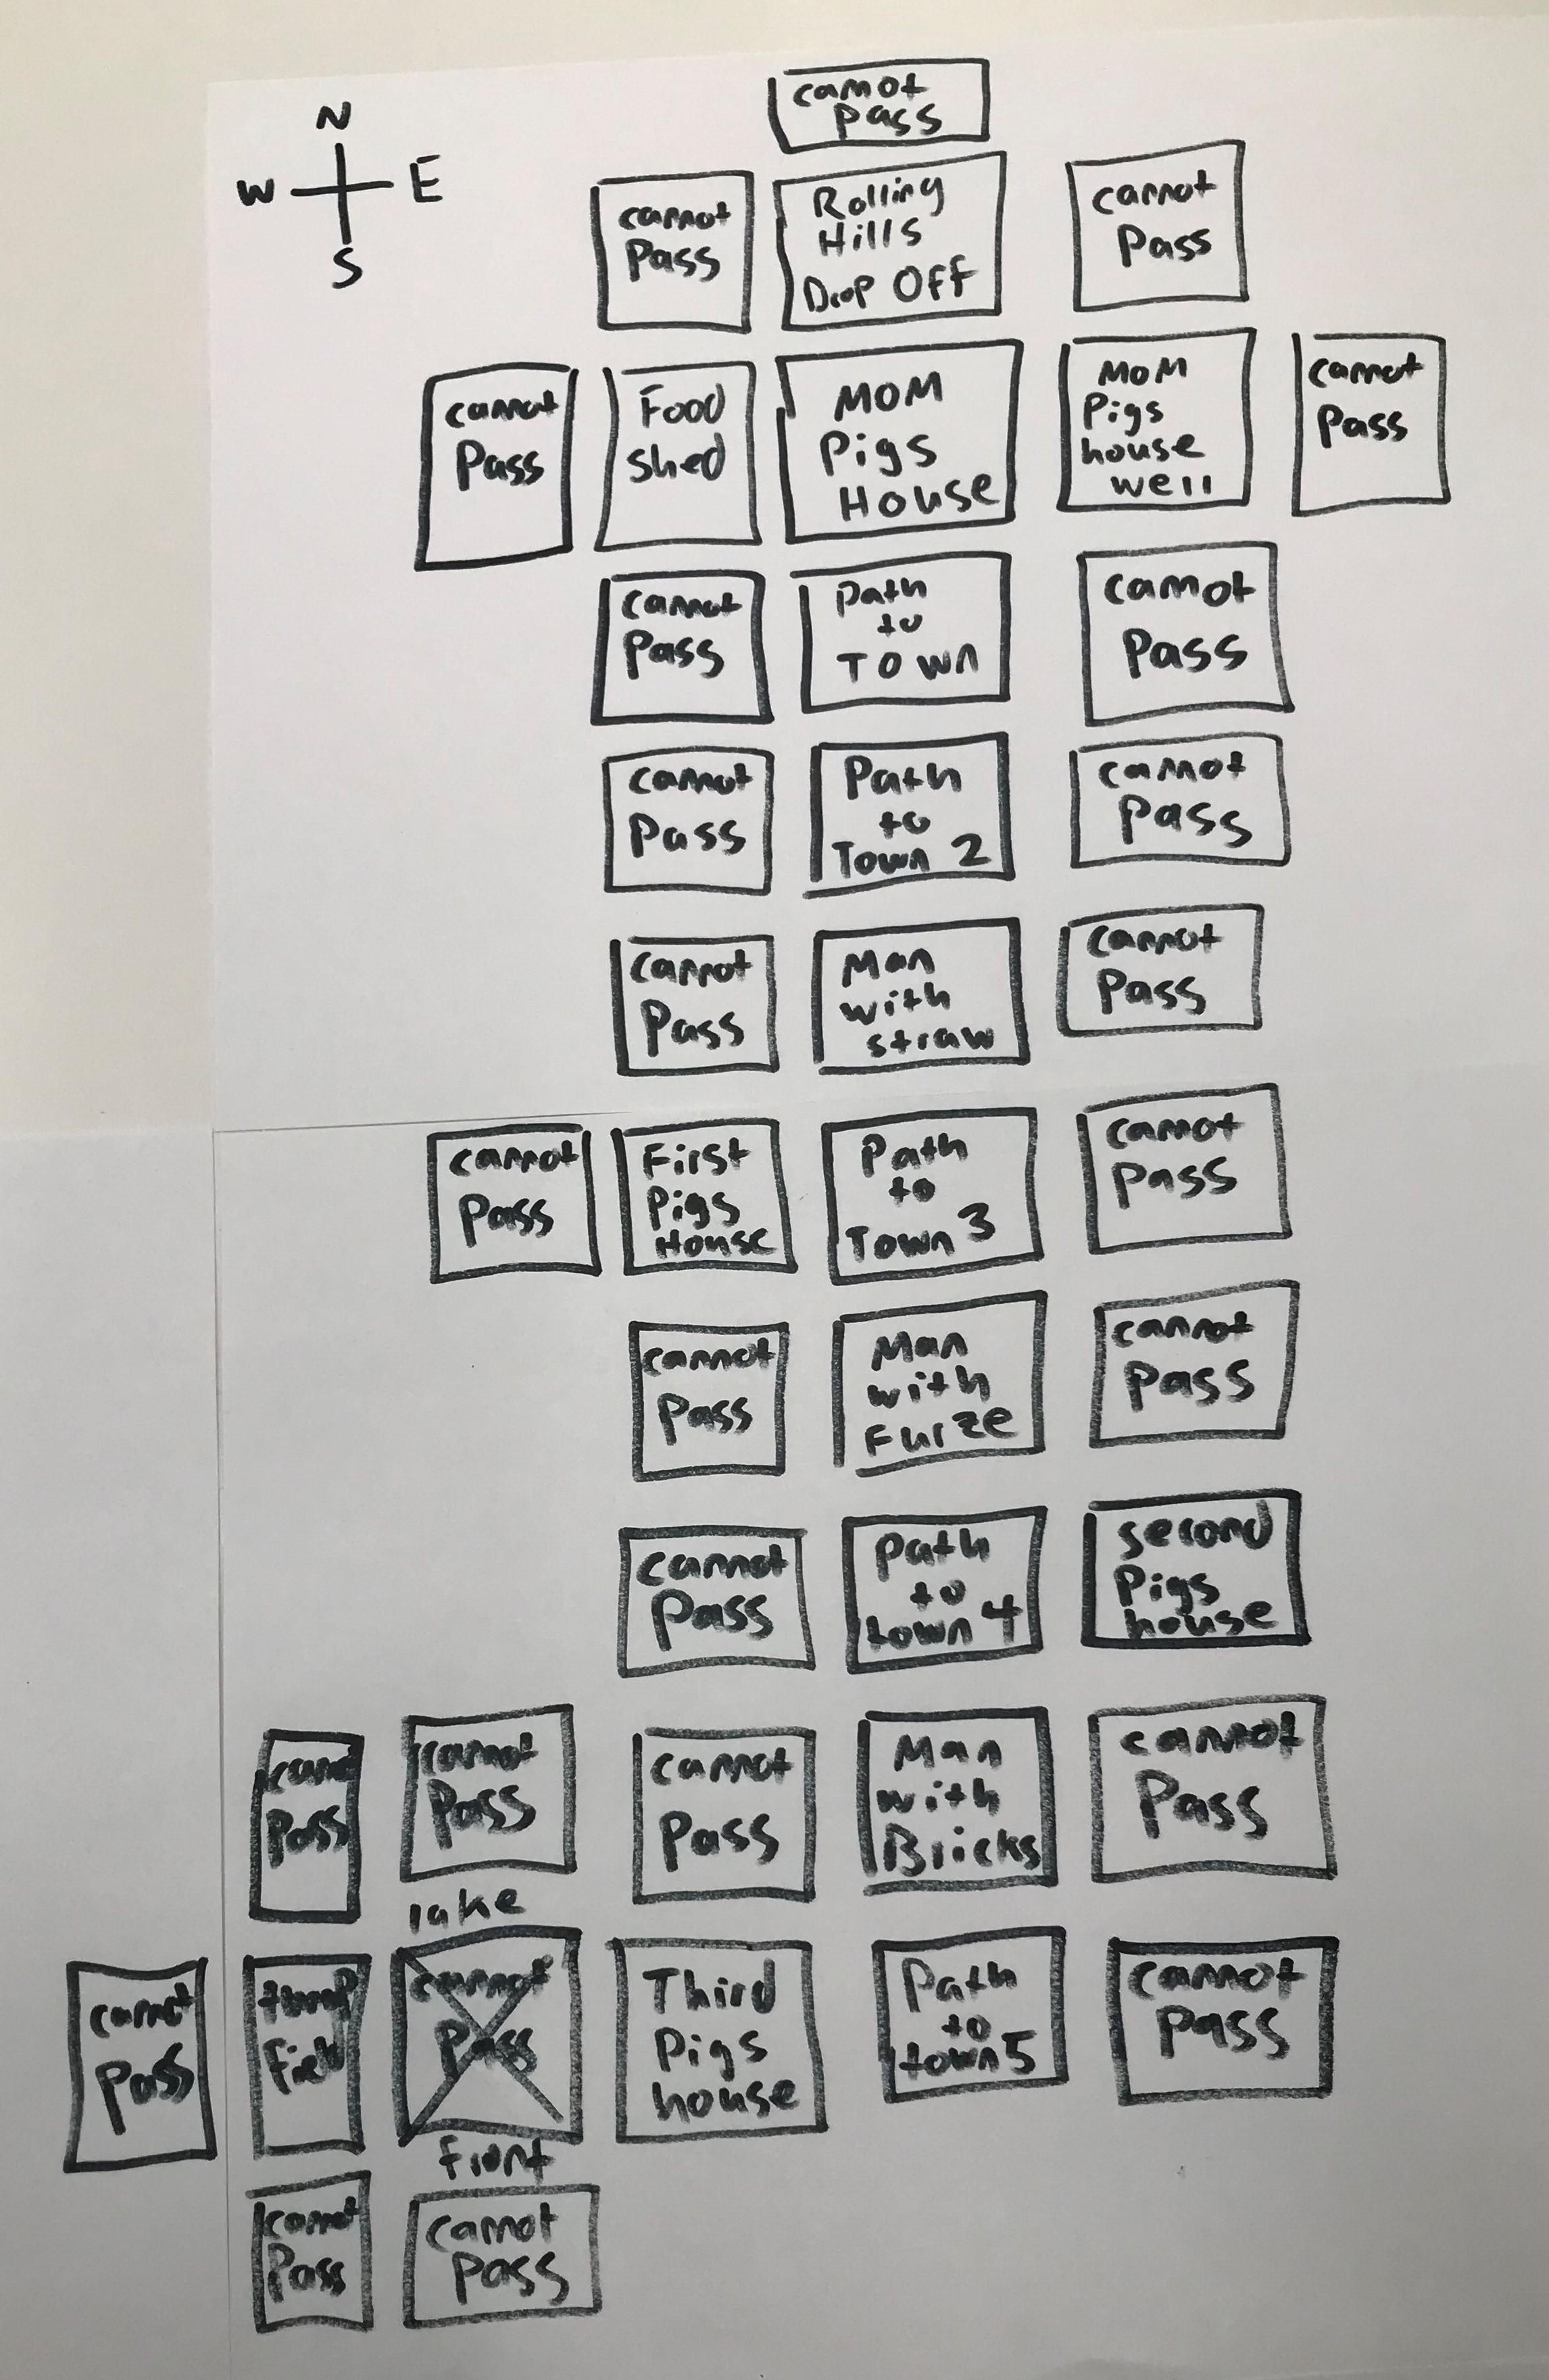 N
W E
S
cannot
pass
cannot
Pass
Rolling
Hills
Drop Off
cannot
Pass
cannot
Pass
Food
shed
MOM
Pigs
House
MOM
Pigs
house
well
cannot
Pass
cannot
Pass
Path
to
TOWN
cannot
Pass
cannot
Pass
Path
to
Town 2
cannot
Pass
cannot
Pass
Man
with
straw
cannot
Pass
cannot
Pass
First
Pigs
House
Path
to
Town 3
cannot
Pass
cannot
Pass
Man
with
Furze
cannot
Pass
cannot
Pass
Path
to
town 4
second
Pigs
house
Pass
cannot
Pass
cannot
Pass
Man
with
Bricks
cannot
Pass
lake
cannot
Pass
Field
cannot
Pass
Third
Pigs
house
Path
to
town 5
cannot
Pass
front
cannot
Pass
cannot
Pass